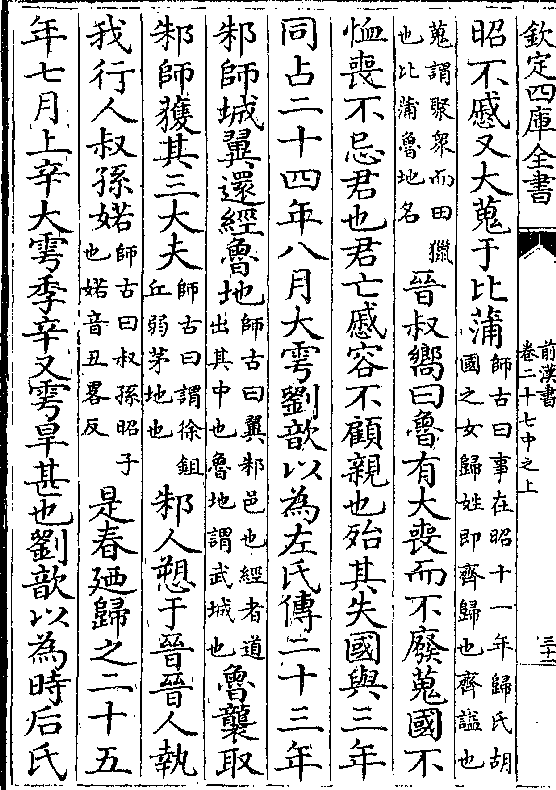 欽定四庫全書
前漢書
卷二十七中之上
三十三
昭不慼又大蒐于比蒲師古曰事在昭十一年歸氏胡國之女歸姓即齊歸也齊諡也
蒐謂聚衆而田獵也比蒲魯地名晉叔嚮曰魯有大喪而不廢蒐國不
恤喪不忌君也君亡慼容不顧親也殆其失國與三年
同占二十四年八月大雩劉歆以為左氏傳二十三年
邾師城翼還經魯地師古曰翼邾邑也經者道出其中也魯地謂武城也魯襲取
邾師獲其三大夫師古曰謂徐鉏丘弱茅地也邾人愬于晉晉人執
我行人叔孫婼師古曰叔孫昭子也婼音丑畧反是春廼歸之二十五
年七月上辛大雩季辛又雩旱甚也劉歆以為時后氏